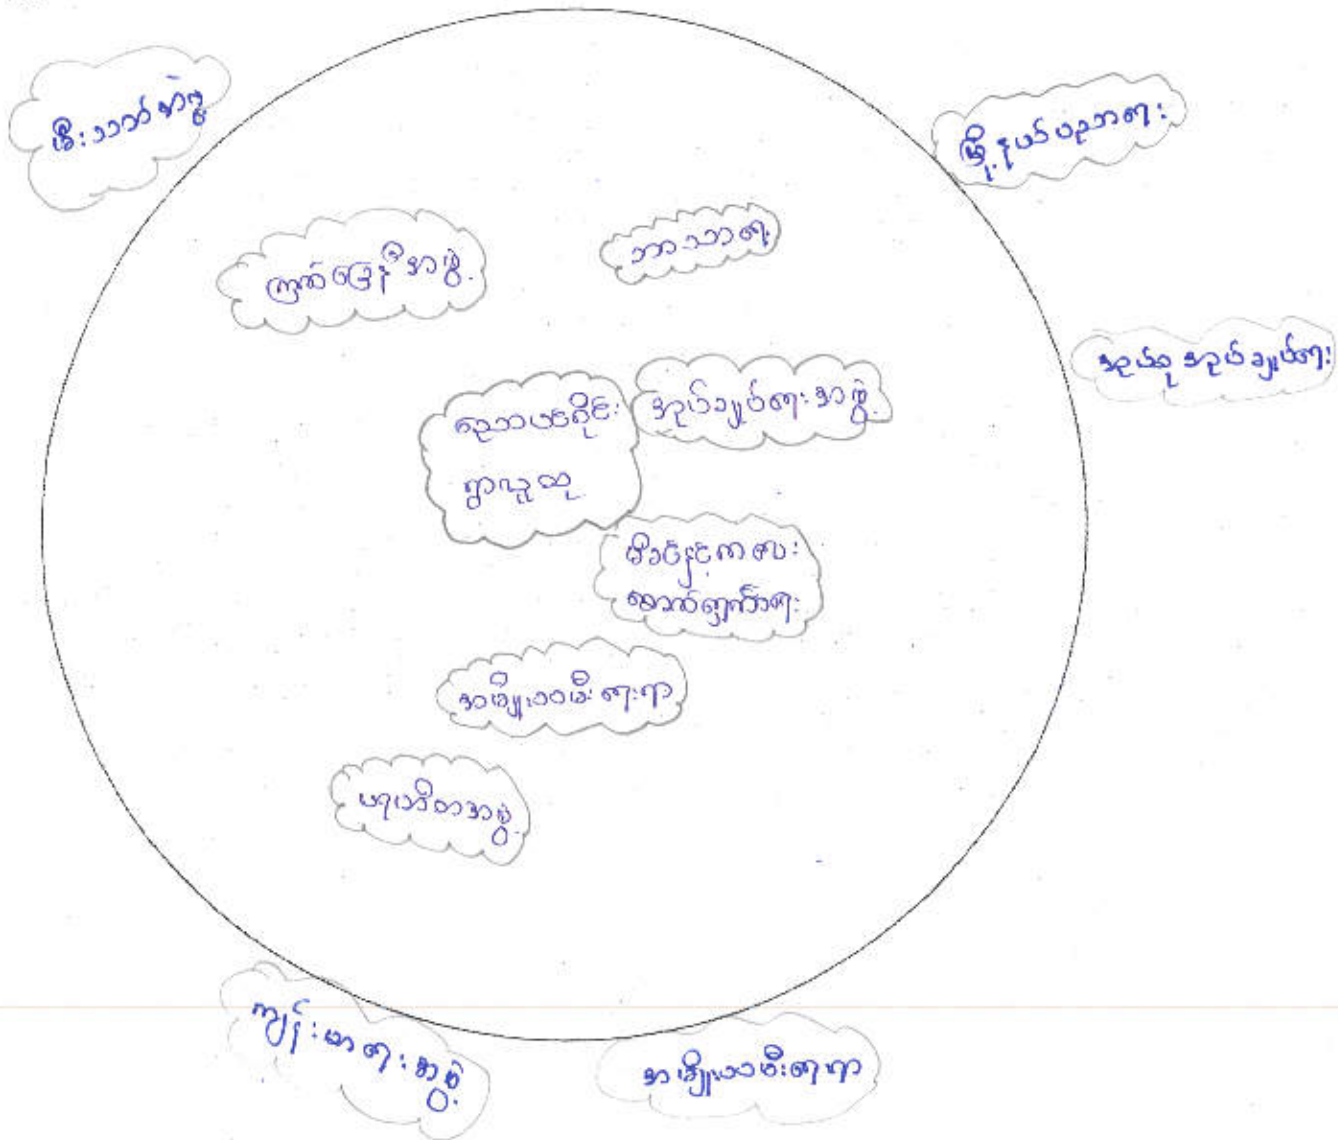 မီးသတ်အဖွဲ့
မြို့နယ်ပညာရေး
ကြက်ခြေနီအဖွဲ့
ဘာသာရေး
အုပ်စုအုပ်ချုပ်ရေး
အုပ်ချုပ်ရေးအဖွဲ့
ညောပင်ဝိုင်း
ရွာလူထု
မိခင်နှင့်ကလေး
စောင့်ရှောက်ရေး
အမျိုးသမီးရေးရာ
ပရဟိတအဖွဲ့
ကျန်းမာရေးအဖွဲ့
အမျိုးသမီးရေးရာ